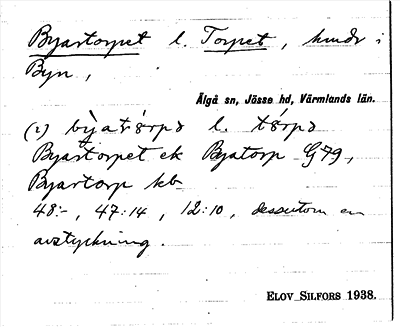 Byastorpet l. Torpet, hmdr i
Byn,
Älgå sn, Jösse hd, Värmlands län.
(2) bỳatórpə l. tórpə
Byastorpet ek Byatorp G79,
Byartorp kb
48:-, 47:14, 12:10, dessutom en
avstyckning.
ELOV SILFORS 1938.